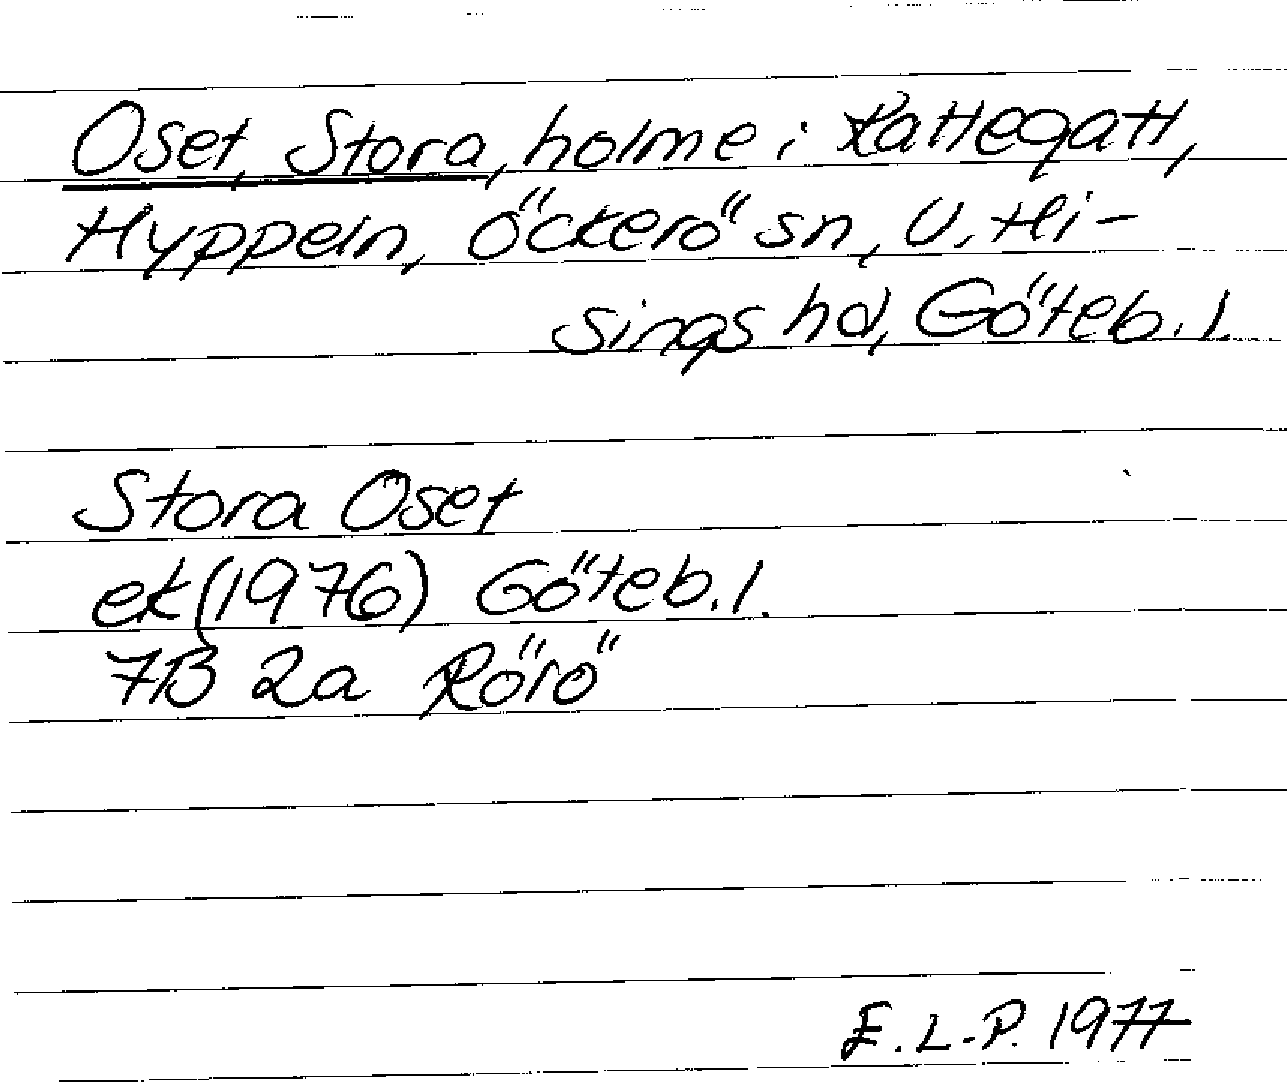 Oset, Stora, holme i Kattegatt,
Hyppeln, Öckerö sn, V. Hi-
sings hd, Göteb. l.
Stora Oset
ek (1976) Göteb. l.
7B 2a Rörö
E. L-P. 1977